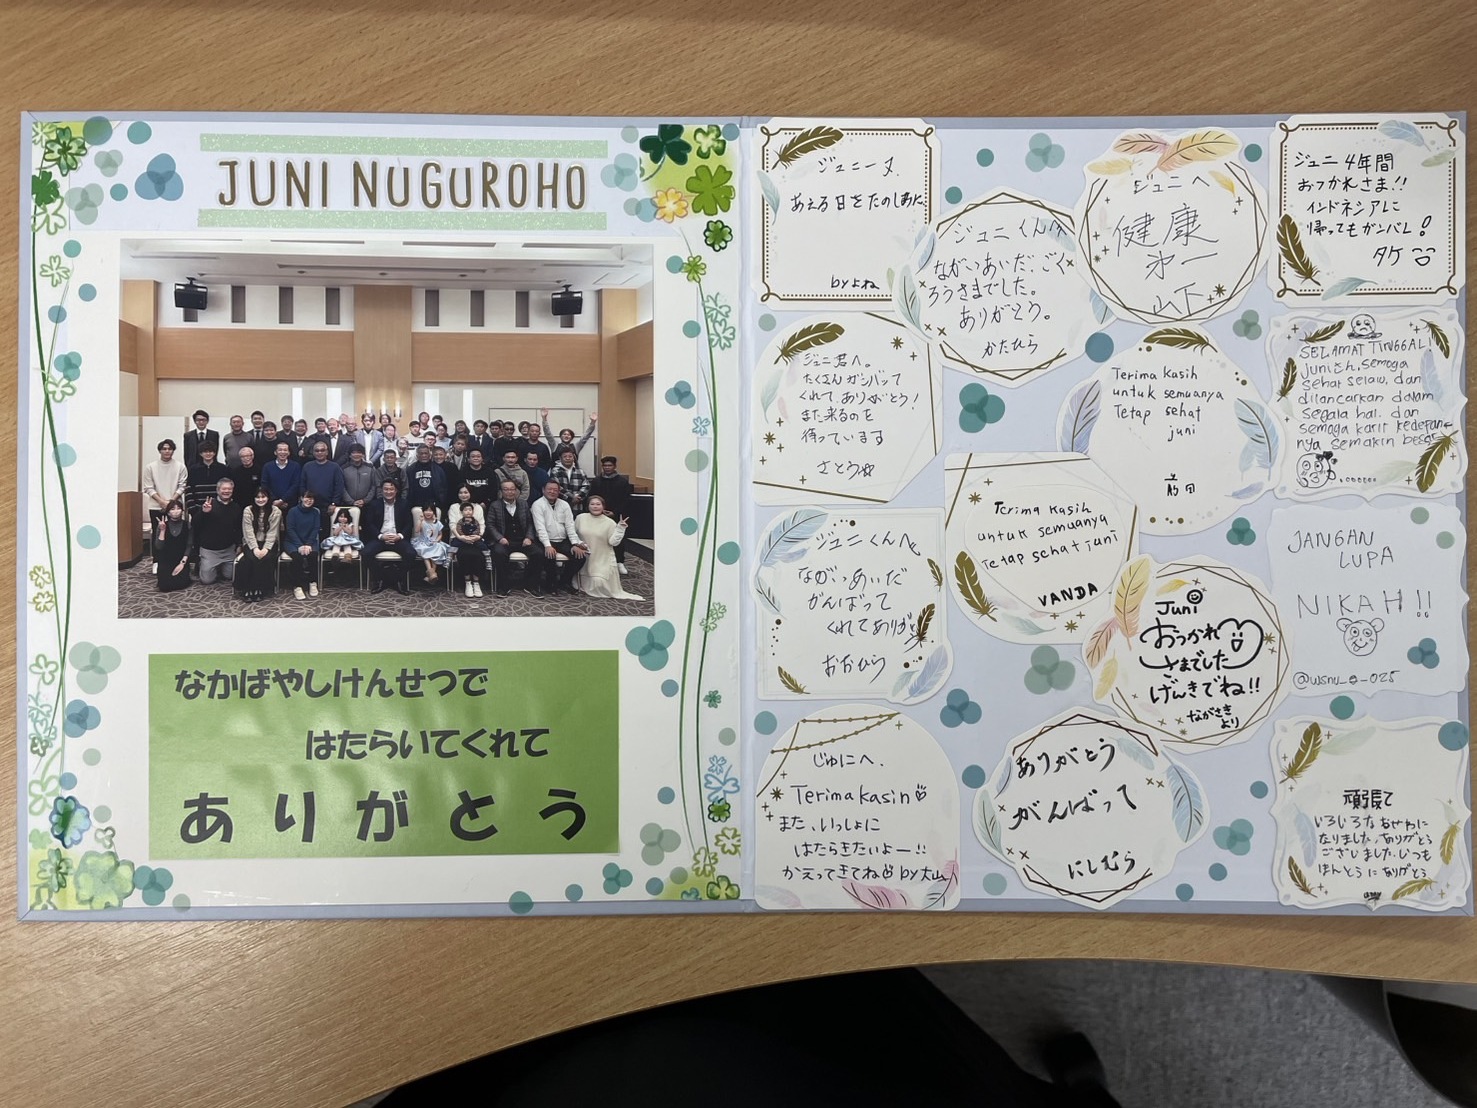 JUNI NUGUROHO
なかばやしけんせつで
はたらいてくれて
ありがとう
ジュニーヌ、
あえる日をたのしみに
byよね
ジュニくんへ
ながいあいだ、ごく
ろうさまでした。
ありがとう。
かたひら
ジュニへ
健康
第一
山下
ジュニ 4年間
おつかれさま!!
インドネシアに
帰ってもガンバレ!
タケ
ジュニ君へ。
たくさんガンバッて
くれて、ありがとう!
また来るのを
待っています
さとう
Terima kasih
untuk semuanya
Tetap sehat
juni
SELAMAT TINGGAL!
Juni Semoga
Sehat selalu, dan
dilancarkan dalam
Segala hal. dan
semoga karir kedepan-
nya semakin besar
Terima kasih
untuk semuanya
Tetap sehat juni
VANDA
ジュニくんへ
ながいあいだ
がんばって
くれてありがとう
おかひら
JANGAN
LUPA
NIKAH!!
Juni
おつかれ
さまでした
げんきでね!!
ながさき
より
じゅにへ、
Terima kasih
また、いっしょに
はたらきたいよー!!
かえってきてね by 大山
ありがとう
がんばって
にしむら
頑張て
いろいろなおせわに
なりました、ありがとう
ございました いつも
ほんとうにありがとう